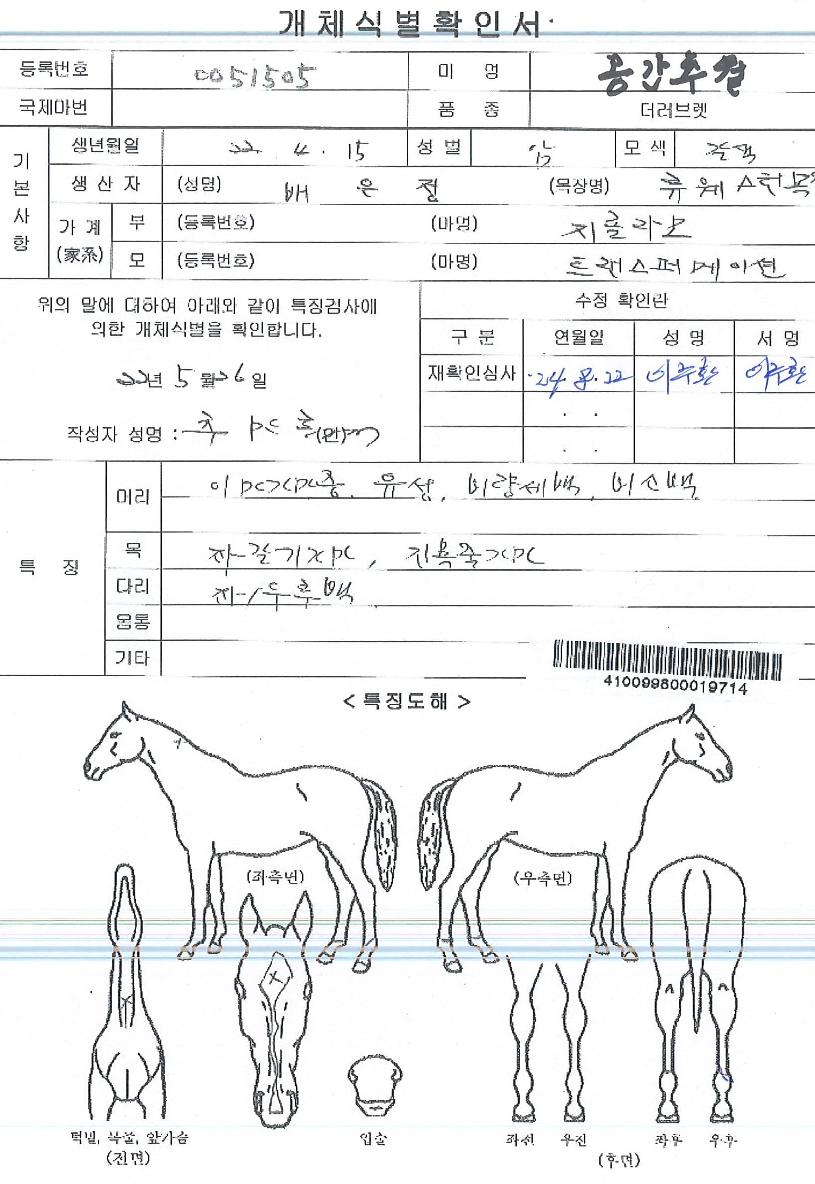 개체식별확인서
등록번호 0051505 미 명
국제마번 품 종 더러브렛
기본사항
생년월일 22. 4. 15 성별 암 모색
생산자 (성명) 배은정 (목장명)
가계 (家系) 부 (등록번호) (마명) 지롤라모
모 (등록번호) (마명) 트랜스퍼메이션
위의 말에 대하여 아래와 같이 특징검사에
의한 개체식별을 확인합니다.
22년 5월 26일
작성자 성명 :
수정 확인란
구분 연월일 성명 서명
재확인심사 '24. 8. 22 이주환 이주환
특징
머리 유성, 비량세백, 비신백
목
다리
몸통
기타
410099800019714
<특징도해>
(좌측면) (우측면)
턱밑, 목줄, 앞가슴
(전면)
입술
좌전 우전 좌후 우후
(후면)